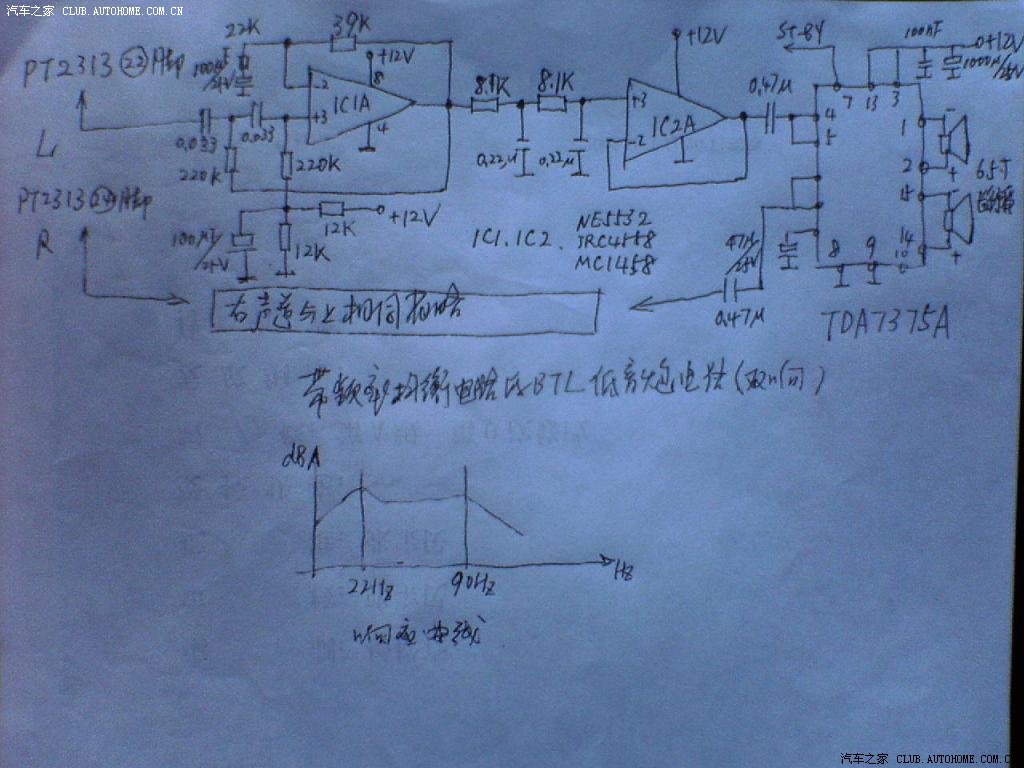 汽车之家 CLUB.AUTOHOME.COM.CN
PT2313 23脚
L
22K
39K
100μF/25V
+12V
8
-2
IC1A
+3
4
0.033
0.033
220K
220K
12K
+12V
100μF/25V
12K
8.1K
8.1K
0.22μ
0.22μ
+12V
+3
IC2A
-2
0.47μ
ST-BY
100nF
+12V
1000μ/25V
7
13
3
4
5
1
2
15
14
10
8
9
+
+
6.5寸
PT2313 24脚
R
IC1、IC2、
NE5532
JRC4558
MC1458
47μ/25V
0.47μ
TDA7375A
右声道与上相同
带频率均衡电路 BTL 低音炮电路
dBA
22Hz
90Hz
Hz
响应曲线
汽车之家 CLUB.AUTOHOME.COM.C